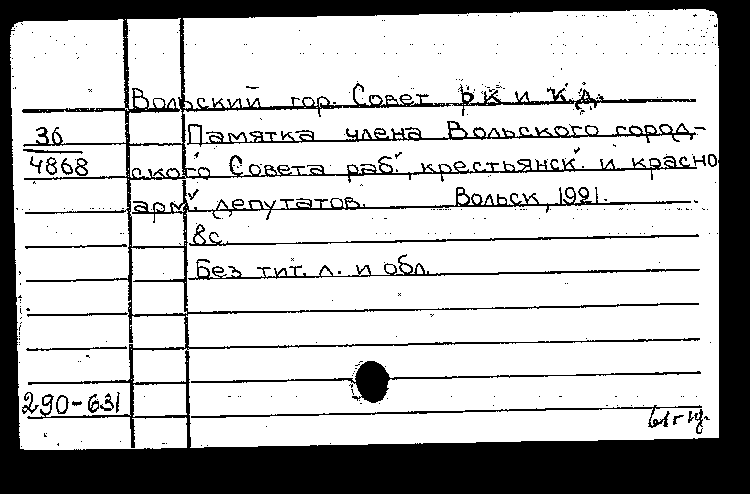 Вольский гор. Совет р К и К.Д.
36
4868
Памятка члена Вольского город-
ского Совета раб., крестьянск. и красно
арм. депутатов. Вольск, 1921.
8с.
Без тит. л. и обл.
290-631